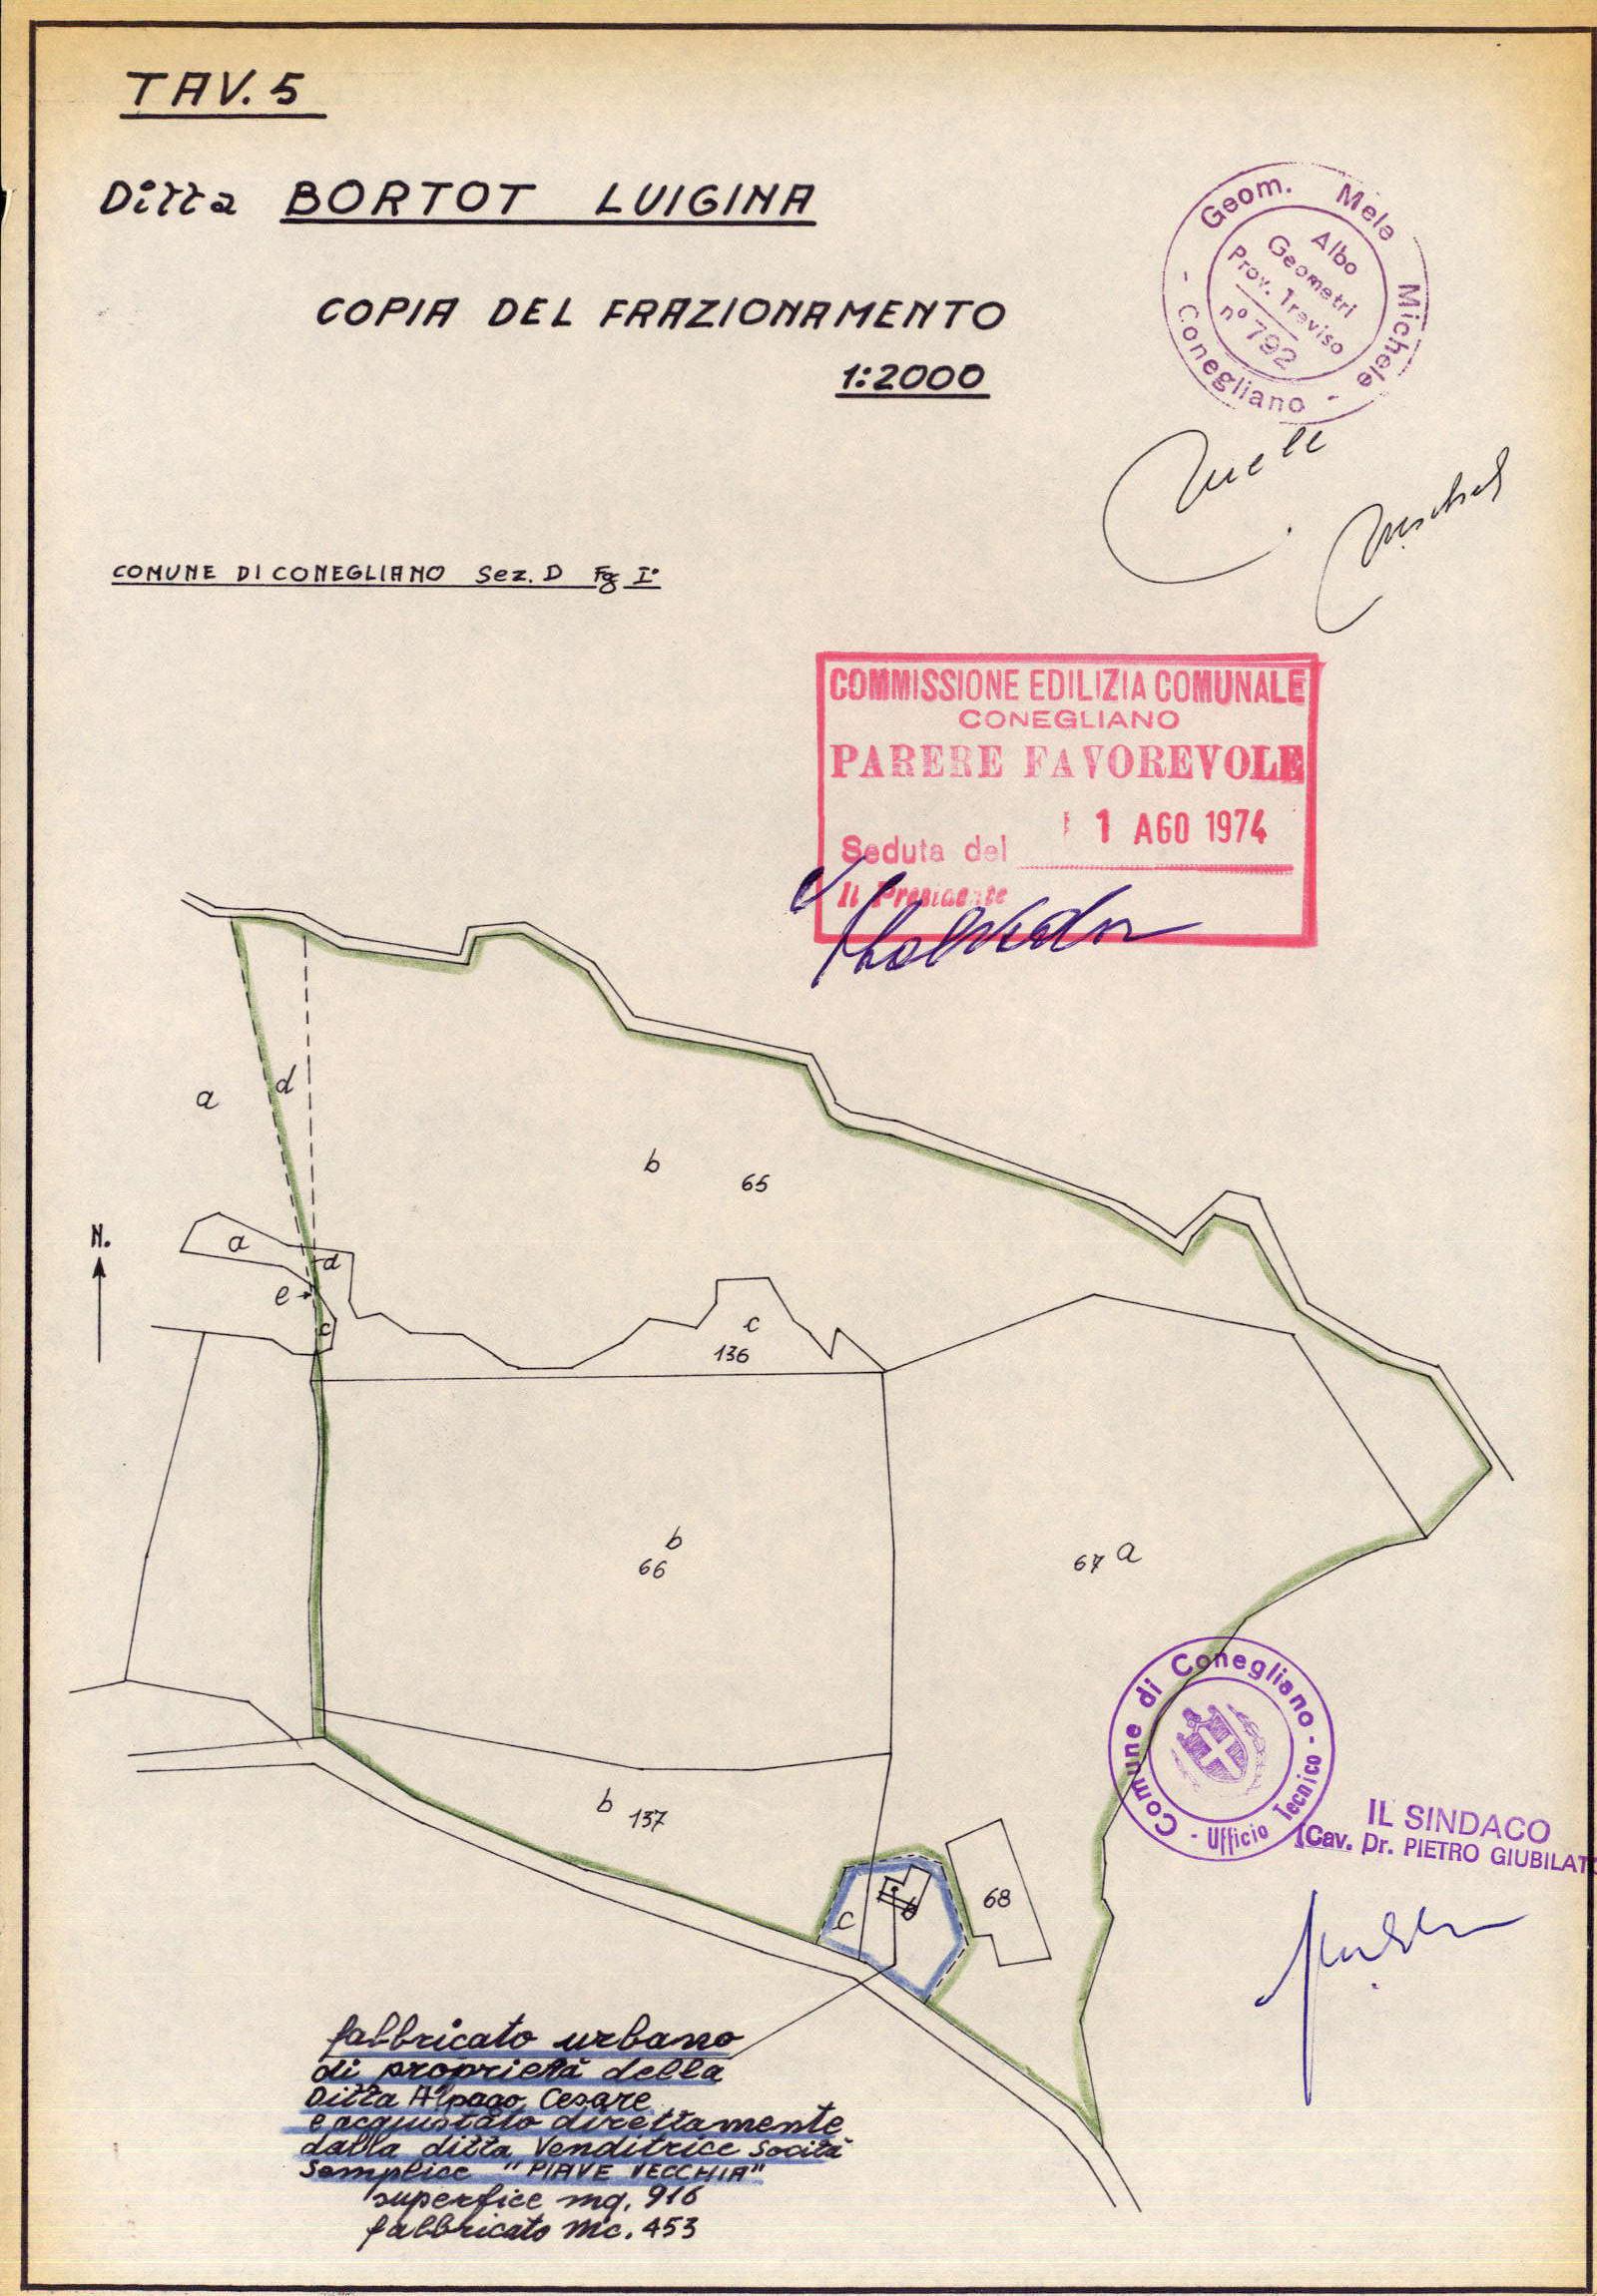 TAV. 5
Ditta BORTOT LUIGINA
COPIA DEL FRAZIONAMENTO
1:2000
Geom. Mele Michele - Conegliano -
Albo
Geometri
Prov. Treviso
n° 792
COMUNE DI CONEGLIANO Sez. D Fg I°
COMMISSIONE EDILIZIA COMUNALE
CONEGLIANO
PARERE FAVOREVOLE
1 AGO 1974
Seduta del
Il Presidente
d
a
b
65
N.
a
d
e
c
c
136
b
66
67 a
Comune di Conegliano - Ufficio Tecnico -
b 137
IL SINDACO
(Cav. Dr. PIETRO GIUBILATO
68
c
fabbricato urbano
di proprietà della
Ditta Alpago Cesare
e acquistato direttamente
dalla ditta Venditrice Socità
Semplice "PIAVE VECCHIA"
superfice mq. 916
fabbricato mc. 453